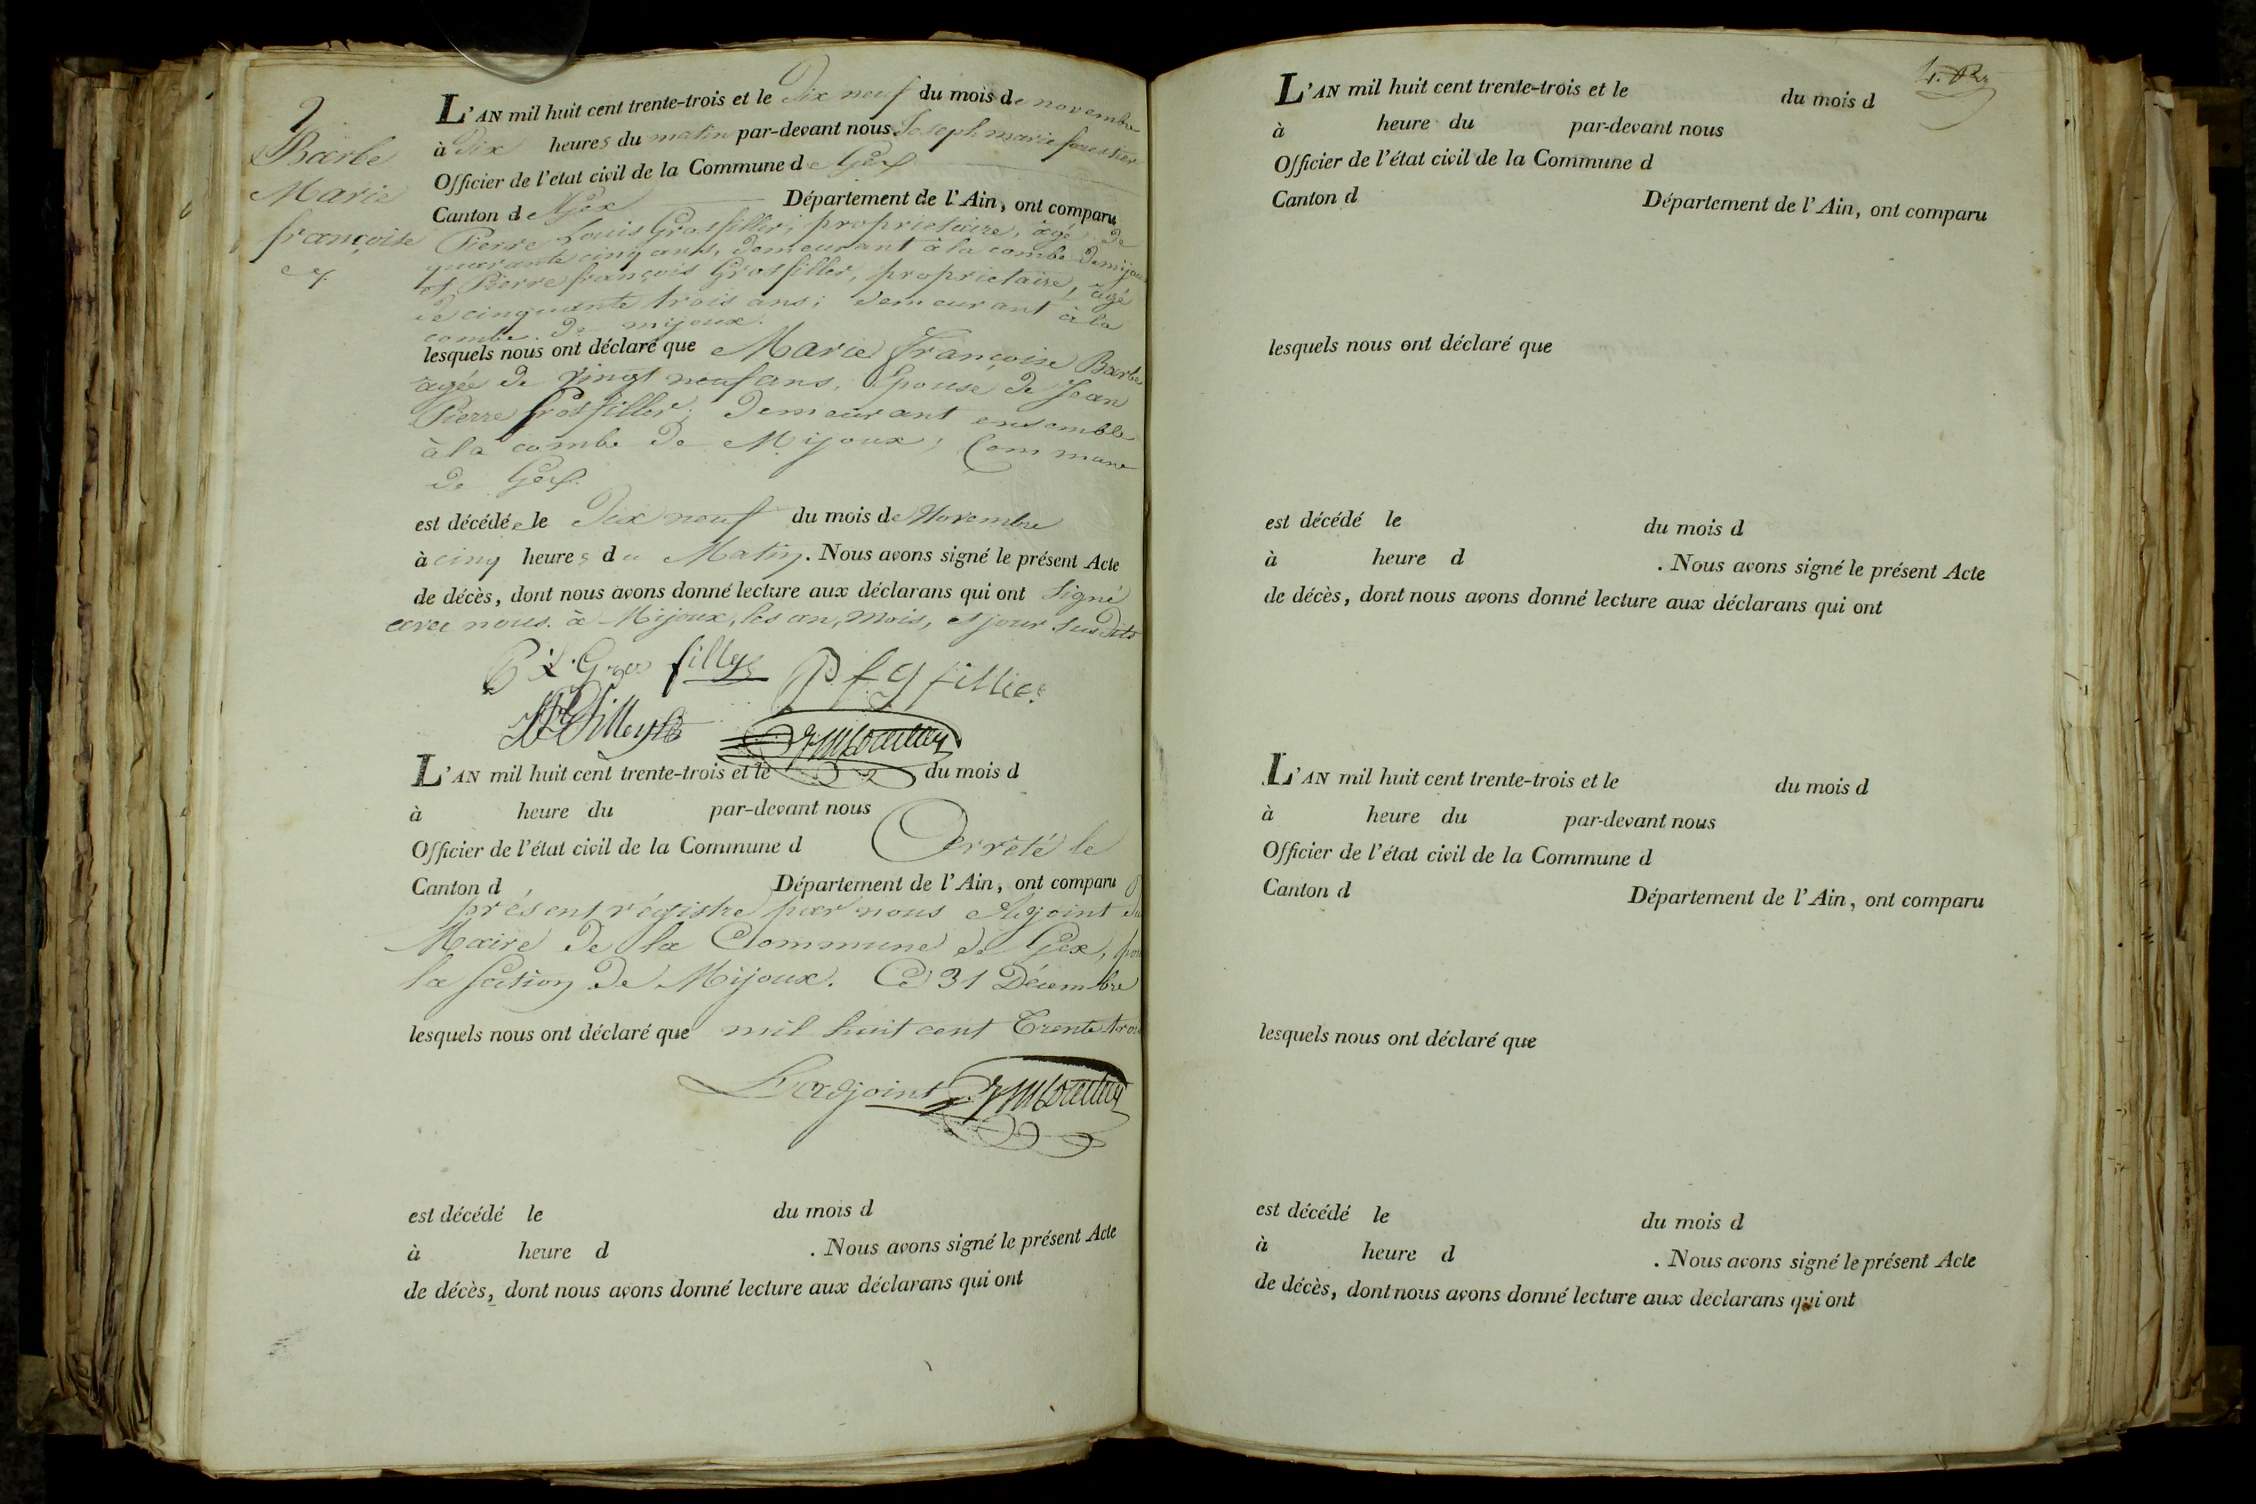 9
Barbe
Marie
françoise
L'AN mil huit cent trente-trois et le Dix neuf du mois de novembre
à Dix heures du matin par-devant nous Joseph marie
Officier de l'etat civil de la Commune de Gex
Canton de Gex Département de l'Ain, ont comparu
Pierre Louis Grosfiller, proprietaire, agé de
quarante cinq ans, demeurant à la combe de mijoux
et Pierre françois Grosfiller, proprietaire, agé
de cinquante trois ans; demeurant à la
combe de mijoux.
lesquels nous ont déclaré que Marie Françoise Barbe
agée de vingt neuf ans, Epouse de Jean
Pierre Grosfiller; demeurant ensemble
à la combe de Mijoux, Commune
de Gex.
est décédée le Dix neuf du mois de Novembre
à cinq heures du Matin. Nous avons signé le présent Acte
de décès, dont nous avons donné lecture aux déclarans qui ont signé
avec nous. à Mijoux, les an, mois, et jour susdits
P. L. Gros filley P f g fillier
L'AN mil huit cent trente-trois et le du mois d
à heure du par-devant nous
Officier de l'état civil de la Commune d Arrêté le
Canton d Département de l'Ain, ont comparu
présent régistre par nous Adjoint du
Maire de la Commune de Gex, pour
la section de Mijoux. Ce 31 Décembre
lesquels nous ont déclaré que mil huit cent Trente trois
L'adjoint
est décédé le du mois d
à heure d . Nous avons signé le présent Acte
de décès, dont nous avons donné lecture aux déclarans qui ont
L'AN mil huit cent trente-trois et le du mois d
à heure du par-devant nous
Officier de l'état civil de la Commune d
Canton d Département de l'Ain, ont comparu
lesquels nous ont déclaré que
est décédé le du mois d
à heure d . Nous avons signé le présent Acte
de décès, dont nous avons donné lecture aux déclarans qui ont
L'AN mil huit cent trente-trois et le du mois d
à heure du par-devant nous
Officier de l'état civil de la Commune d
Canton d Département de l'Ain, ont comparu
lesquels nous ont déclaré que
est décédé le du mois d
à heure d . Nous avons signé le présent Acte
de décès, dont nous avons donné lecture aux declarans qui ont